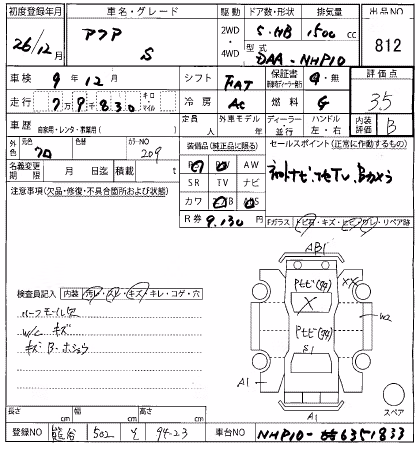 初度登録年月
26/12月
車名・グレード
アクア S
駆動
2WD
4WD
ドア数・形状
5・HB
排気量
1500 cc
型式
DAA-NHP10
出品NO
812
車検 9年12月
シフト FAT
保証書
有・無
評価点
3.5
走行 79830 キロ マイル
冷房 AC
燃料 G
車歴
自家用・レンタ・教習用( )
定員 人
外車モデル 年
ディーラー 並行
ハンドル 左・右
内装評価 B
外色
元色 クロ
色替
カラーNO 209
名義変更期限 月 日迄
積載 t
装備品(純正品に限る)
AW
SR TV ナビ
カワ
R券 9,130円
セールスポイント(正常に作動するもの)
注意事項(欠品・修復・不具合箇所および状態)
Fガラス トビ石・キズ・ヒビ・ワレ・リペア跡
AB1
検査員記入 内装 汚レ・スレ・キズ・キレ・コゲ・穴
ルーフモール欠
W/C キズ
X
XX
W2
S1
A1
A1
スペア
長さ cm
幅 cm
高さ cm
登録NO 熊谷 502 そ 94-23
車台NO NHP10-6351833